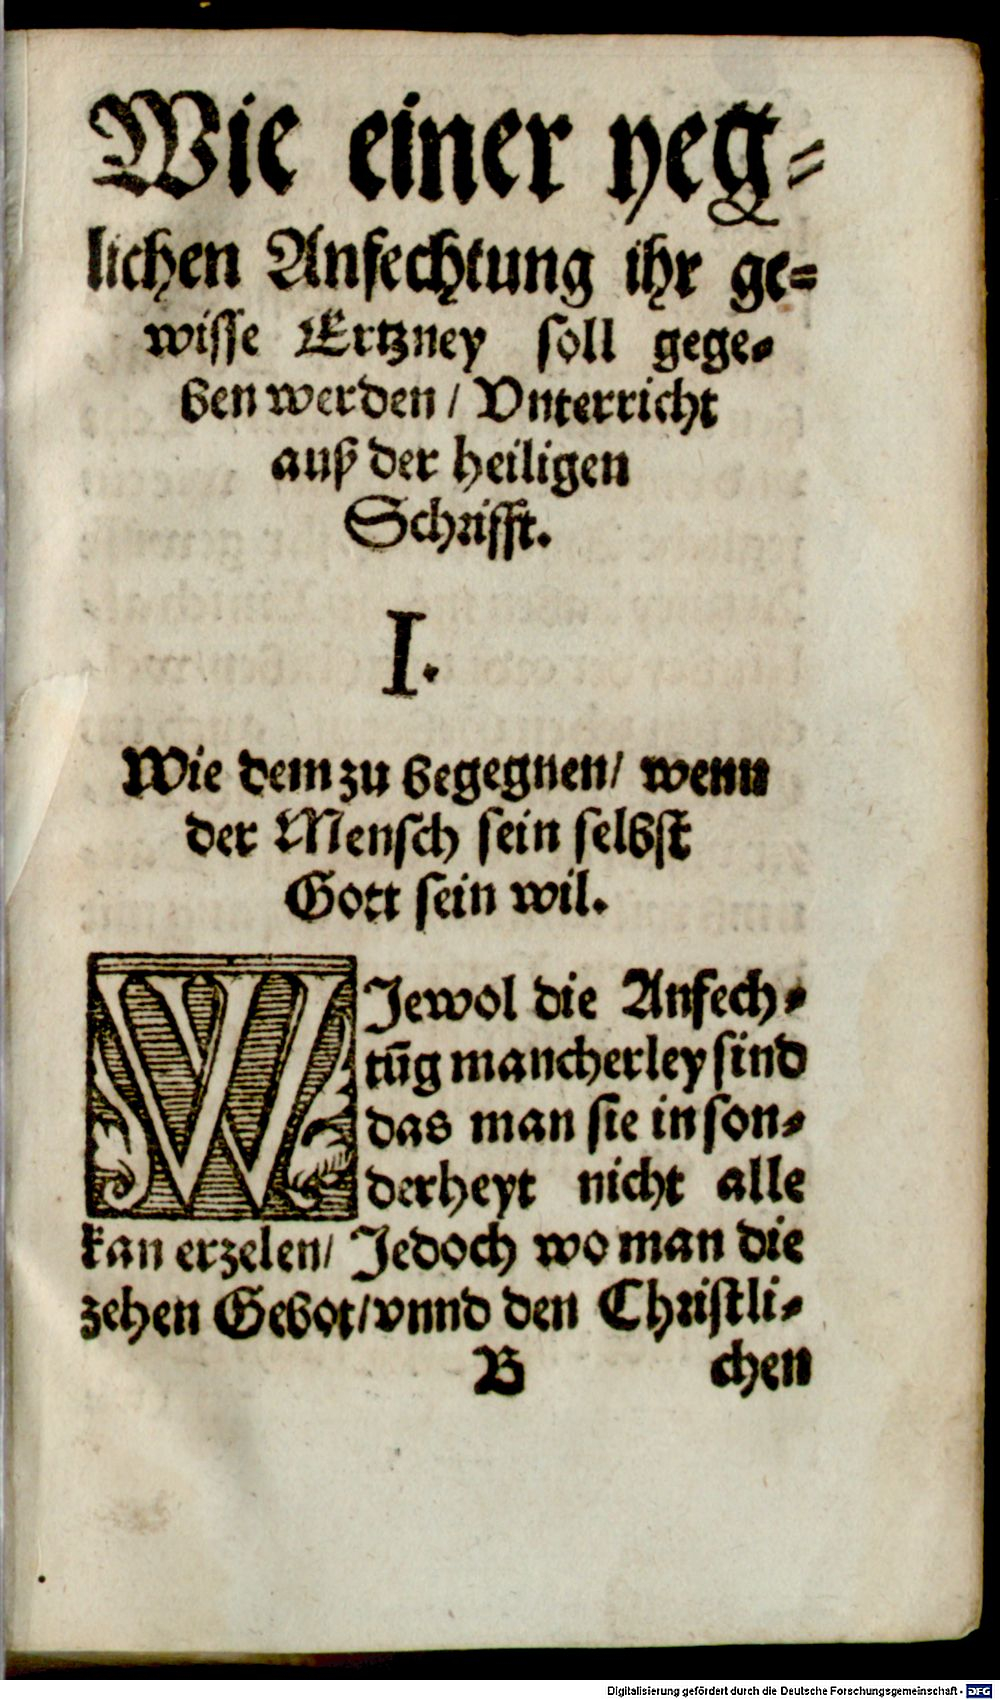 Wie einer yeg⸗
lichen Anfechtung ihr ge⸗
wisse Ertzney soll gege⸗
ben werden / Vnterricht
auß der heiligen
Schrifft.
I.
Wie dem zu begegnen / wenn
der Mensch sein selbst
Gott sein wil.
WJewol die Anfech⸗
tūg mancherley sind
das man sie in son⸗
derheyt nicht alle
kan erzelen / Jedoch wo man die
zehen Gebot / vnnd den Christli⸗
B chen
Digitalisierung gefördert durch die Deutsche Forschungsgemeinschaft - DFG